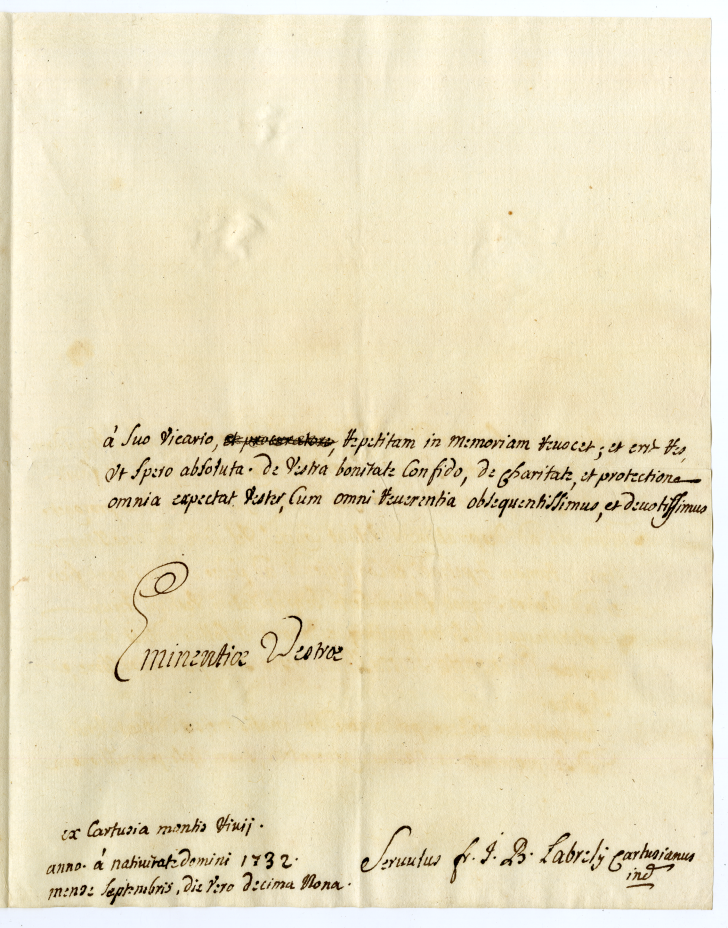 á Suo Vicario, et procuratore, repetitam in memoriam revocet; et erit res,
Ut Spero absoluta. de Vestra bonitate Confido, de Charitate, et protectione
omnia expectat Vester, Cum omni reverentia obsequentissimus, et devotissimus
Eminentiæ Vestræ
ex Cartusia montis rivij.
anno. á nativitate domini 1732.
mense Septembris, die vero decima nona.
Servulus fr. J. B. Labrely Cartusianus
ind